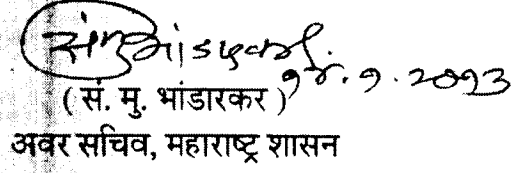 १४.१.२०१३
( सं. मु. भांडारकर )
अवर सचिव, महाराष्ट्र शासन